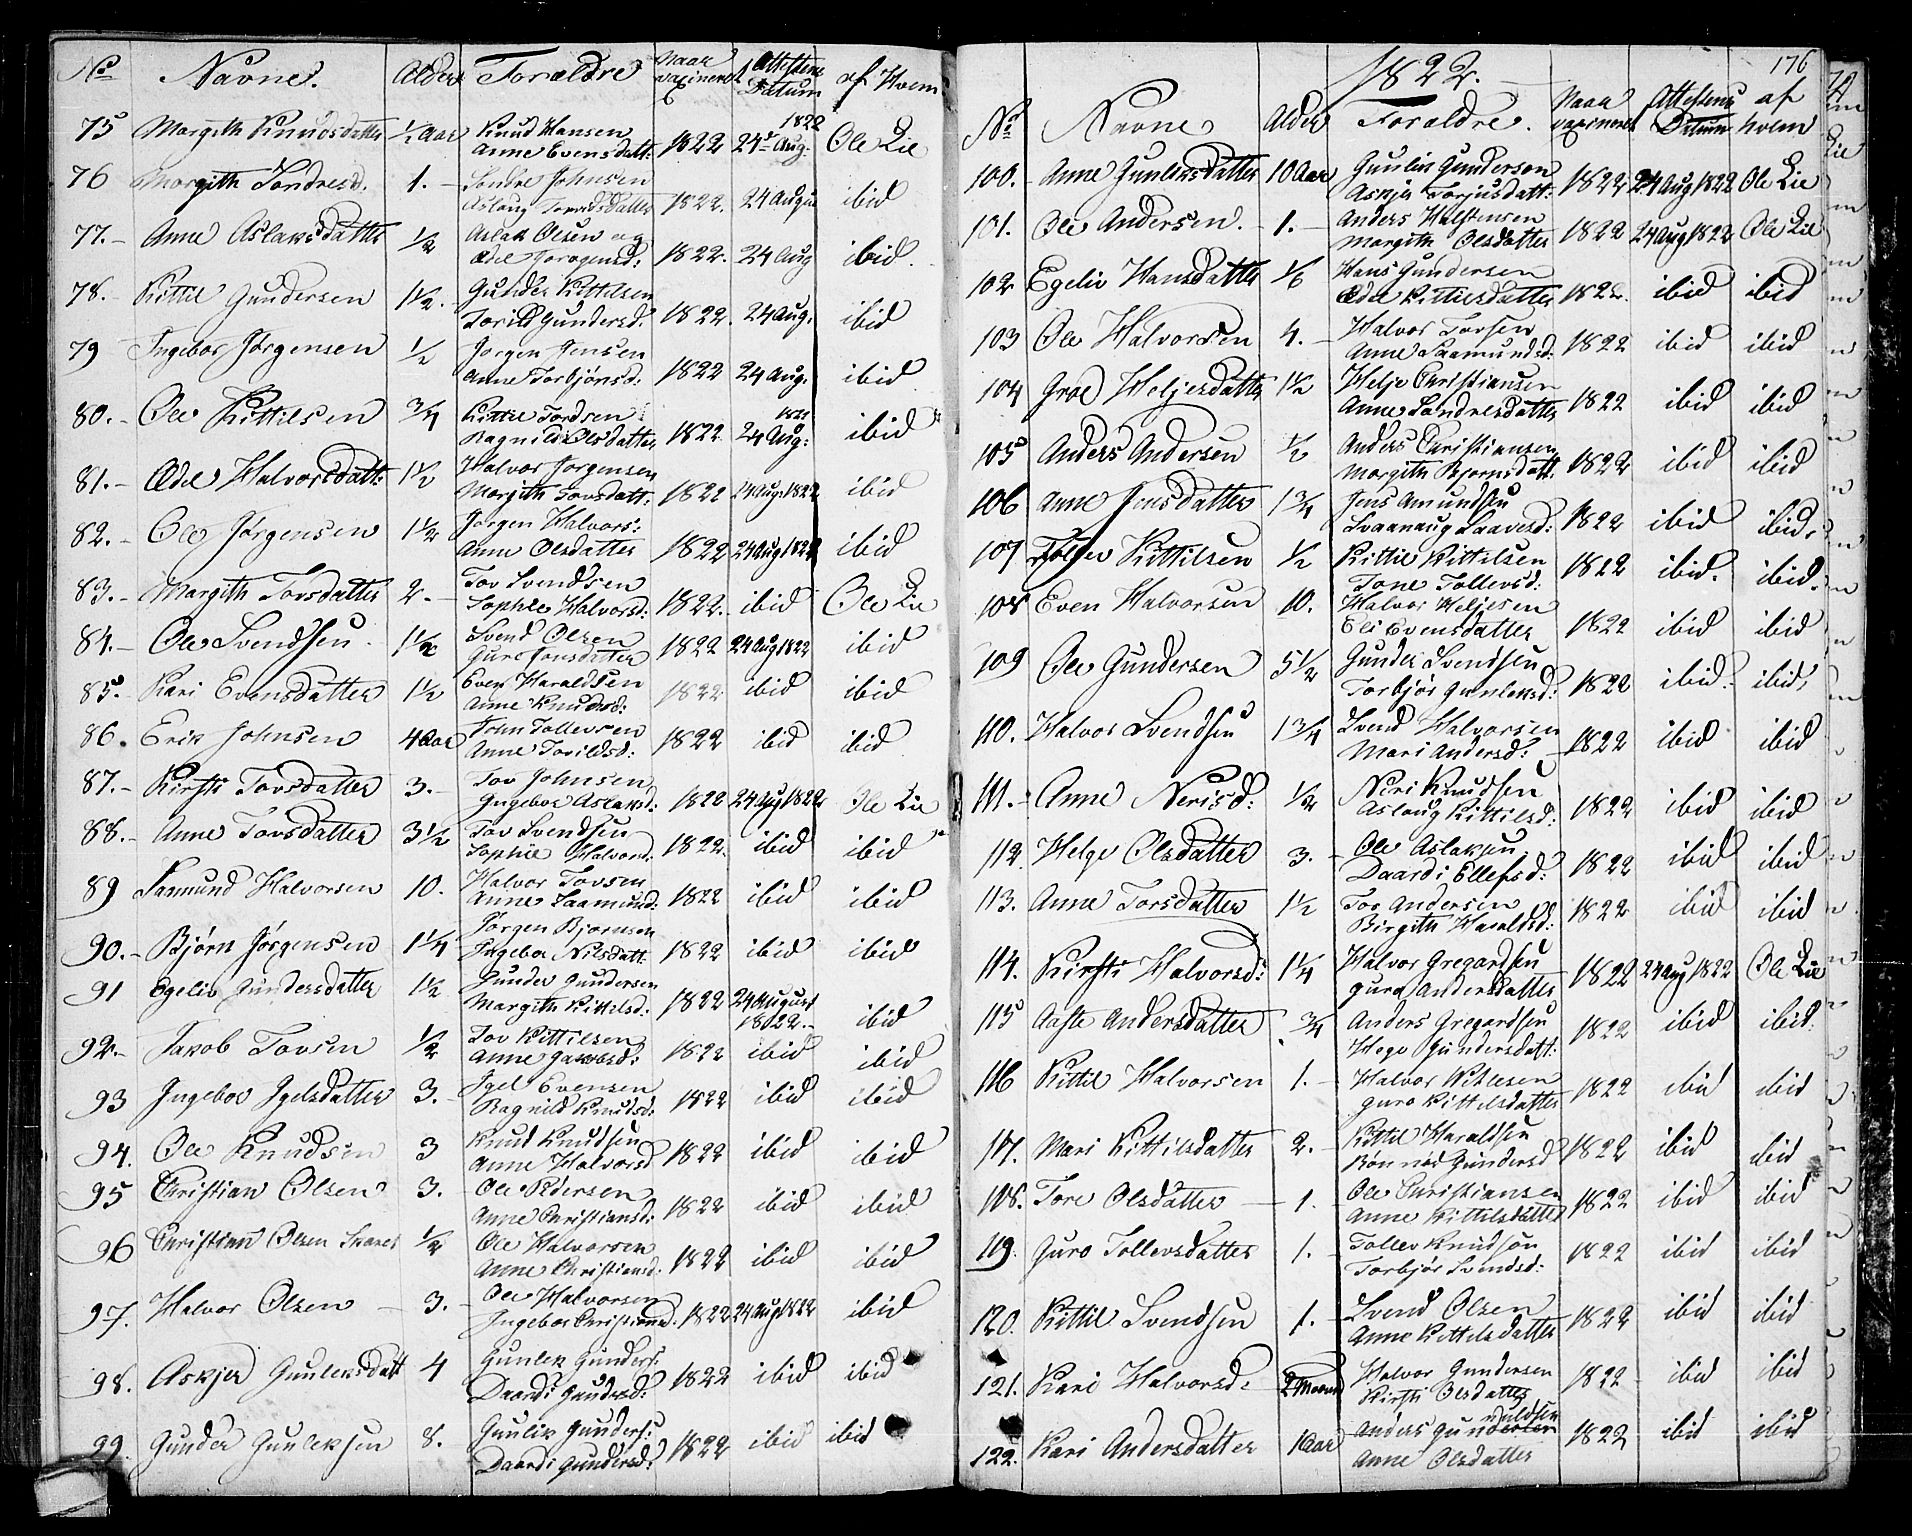 No Navne. Alder Forældre Naar vaxineret Attestens Datum af Hvem
75 Margith Knudsdatter ½ Aar Knud Hansen 1822 24de Aug. 1822 Ole Lie
Anne Evensdatt:
76 Margith Sondresd. 1. Sondre Johnsen 1822. 24 August ibid
Aslaug
77. Anne Aslaksdatter ½ Aslak Olsen og 1822. 24 Aug ibid.
Ædel Jørgensd:
78. Kittil Gundersen 1½. Gunder Kittilsen 1822. 24 Aug. ibid
Torild Gundersd.
79 Ingebor Jørgensen ½ Jørgen Jensen 1822 24 Aug. ibid
Anne Torbjønsd:
80. Ole Kittilsen ¾ Kittil Tordsen 1822 24 Aug: ibid
Ragnild Olsdatter
81. Ædel Halvorsdatt: 1½ Halvor Jørgensen 1822 24 Aug 1822 ibid
Margith Tovsdatt:
82. Ole Jørgensen 1½ Jørgen Halvors: 1822 24 Aug 1822 ibid
Anne Olsdatter
83. Margith Tovsdatter 2. Tov Svendsen 1822. ibid Ole Lie
Sophie Halvorsd:
84. Ole Svendsen 1½ Svend Olsen 1822 24 Aug 1822 ibid
Guro Jonsdatter
85. Kari Evensdatter 1½ Even Haraldsen 1822 ibid ibid
Anne Knudsd:
86. Erik Johnsen 4 Aar John Tollevsen 1822 ibid ibid
Anne Torildsd:
87. Kirsti Tovsdatter 3. Tov Johnsen 1822 24 Aug 1822 Ole Lie
Ingebor Aslaksd:
88. Anne Tovsdatter 3½ Tov Svendsen 1822. ibid ibid
Sophie Halvorsd:
89 Samund Halvorsen 10. Halvor Tovsen 1822 ibid ibid
Anne Saamund:
90. Bjørn Jørgensen 1¼ Jørgen Bjørnsen 1822 ibid ibid
Ingebor Nilsdatt.
91 Egeliv Gundersdatter 1½ Gunder Gundersen 1822 24 August 1822. ibid
Margith Kittilsd:
92. Jakob Tovsen ½ Tov Kittilsen 1822 ibid ibid
Anne Jakobsd:
93 Ingebor Igelsdatter 3. Igel Evensen 1822 ibid ibid
Ragnild Knudsd:
94. Ole Knudsen 3 Knud Knudsen 1822 ibid ibid
Anne Halvorsd
95 Christian Olsen 3. Ole Pedersen 1822 ibid ibid
Anne Christiansd:
96 Christian Olsen ½ Ole Halvorsen 1822 ibid ibid
Anne Christiansd:
97. Halvor Olsen 3. Ole Halvorsen 1822 24 Aug 1822 ibid
Ingebor Christiansd.
98. Askjer Gunleksdatt 4 Gunlek Gunders: 1822 ibid ibid
Daardi Gundersd:
99. Gunder Gunleksen 8. Gunlik Gunders: 1822 ibid ibid
Daardi Gundersd:
1822. 176
No Navne Alder Forældre. Naar vaxineret Attestens Datum af hvem
100. Anne Gunliksdatter 10 Aar Gunlik Gunderson 1822 24 Aug 1822 Ole Lie
Askje Torjusdatt:
101. Ole Andersen. 1. Anders Halstensen 1822 24 Aug 1822 Ole Lie
Margith Olsdatter
102 Egeliv Hansdatter 1/6 Hans Gundersen 1822. ibid ibid
Ædel Kittilsdatter
103 Ole Halvorsen 4. Halvor Tovsen 1822 ibid ibid
Anne Saamundsd:
104 Groe Heljesdatter 1½ Helje Christiansen 1822 ibid ibid
Anne Sondresdatter
105 Anders Andersen ½ Anders Christiansen 1822 ibid ibid
Margith Bjørnsdatt.
106 Anne Jensdatter 1¾ Jens Amundsen 1822 ibid ibid.
Svaanaug Saavesd:
107 Kittilsen ½ Kittil Kittilsen 1822 ibid. ibid.
Tone Tollevsd:
108 Even Halvorsen 10. Halvor Heljesen 1822 ibid ibid
Eli Evensdatter
109 Ole Gundersen 5½ Gunder Svendsen 1822 ibid. ibid.
Torbjør Gunleksd:
110. Halvor Svendsen 1¾ Svend Halvorsen 1822 ibid ibid
Mari Andersd:
111. Anne Nerisd: ½ Neri Knudsen 1822 ibid ibid
Aslaug Kittilsd:
112 Helge Olsdatter 3. Ole Aslaksen 1822 ibid ibid
Daardi Ellefsd:
113. Anne Torsdatter 1½ Tor Andersen 1822 ibid ibid
Birgith Haraldsd:
114. Kirsti Halvorsd: 1¼ Halvor Gregardsen 1822 24 Aug 1822 Ole Lie
Guro Andersdatter
115 Aaste Andersdatter ¾ Anders Gregardsen 1822 ibid ibid:
Hege Gundersdatt:
116 Kittil Halvorsen 1. Halvor 1822 ibid ibid
Guro Kittilsdatter
117. Mari Kittilsdatter 2. Kittil Haraldsen 1822 ibid ibid
Rønnød Gundersd
108. Tore Olsdatter 1. Ole Christiansen 1822 ibid ibid
Anne Kittilsdatter
119. Guro Tollevsdatter 1. Tollev Knudsen 1822 ibid ibid
Torbjør Svendsd:
120. Kittil Svendsen 1. Svend Olsen 1822 ibid ibid
Anne Kittilsdatter
121. Kari Halvorsd: 2 Halvor Gundersen 1822 ibid ibid
Kirsti Olsdatter
122. Kari Andersdatter 1 Aar Anders 1822 ibid ibid
Anne Olsdatter